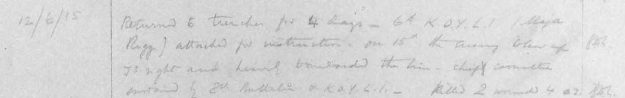 12/6/15 Returned to trenches for 4 days - 6th K.O.Y.L.I. (Major
Rigg) attached for instruction. on 15th the enemy blew up
to right and heavily bombarded the line - chief casualties
by 8th Battalion K.O.Y.L.I. - Killed 2 wounded 4 O.R.